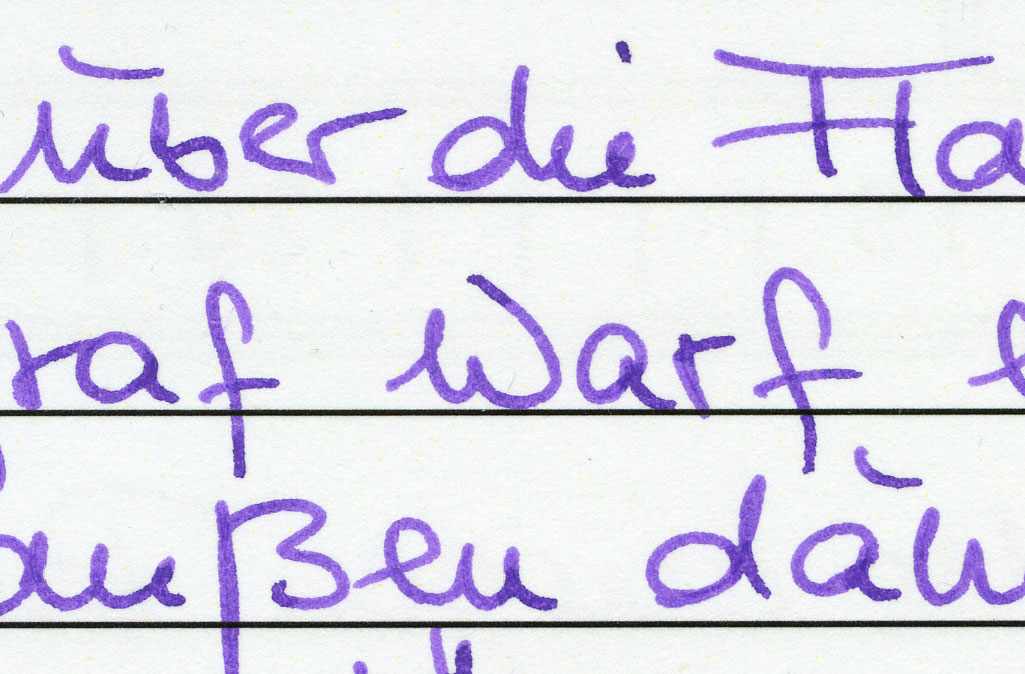 über die Fla
raf warf
außen däm